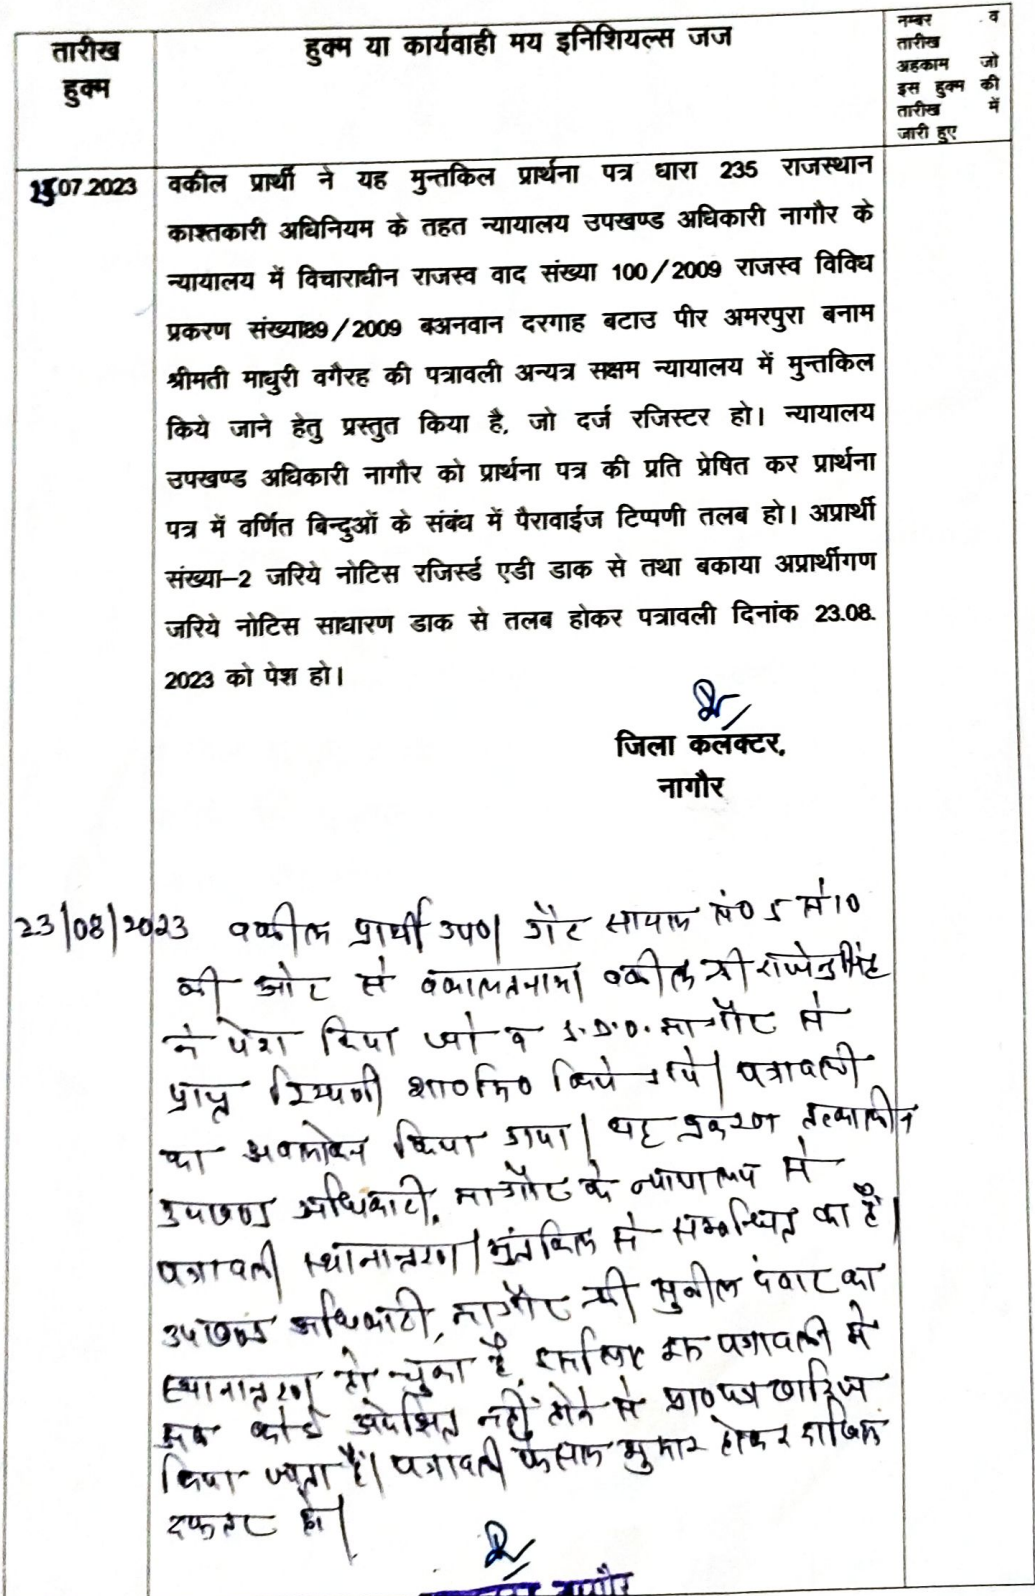 तारीख
हुक्म
हुक्म या कार्यवाही मय इनिशियल्स जज
नम्बर व
तारीख
अहकाम जो
इस हुक्म की
तारीख में
जारी हुए
07.2023
वकील प्रार्थी ने यह मुन्तकिल प्रार्थना पत्र धारा 235 राजस्थान
काश्तकारी अधिनियम के तहत न्यायालय उपखण्ड अधिकारी नागौर के
न्यायालय में विचाराधीन राजस्व वाद संख्या 100/2009 राजस्व विविध
प्रकरण संख्या89/2009 बअनवान दरगाह बटाउ पीर अमरपुरा बनाम
श्रीमती माधुरी वगैरह की पत्रावली अन्यत्र सक्षम न्यायालय में मुन्तकिल
किये जाने हेतु प्रस्तुत किया है, जो दर्ज रजिस्टर हो। न्यायालय
उपखण्ड अधिकारी नागौर को प्रार्थना पत्र की प्रति प्रेषित कर प्रार्थना
पत्र में वर्णित बिन्दुओं के संबंध में पैरावाईज टिप्पणी तलब हो। अप्रार्थी
संख्या–2 जरिये नोटिस रजिर्स्ड एडी डाक से तथा बकाया अप्रार्थीगण
जरिये नोटिस साधारण डाक से तलब होकर पत्रावली दिनांक 23.08.
2023 को पेश हो।
जिला कलक्टर,
नागौर
23/08/2023 वकील प्रार्थी उप०। गैर सायल सं० 5 से 10
की ओर से वकालतनामा वकील श्री राजेन्द्रसिंह
ने पेश किया जो व S.D.O. नागौर से
प्राप्त टिप्पणी शा०मि० किये गये। पत्रावली
का अवलोकन किया गया। यह प्रकरण तत्कालीन
उपखण्ड अधिकारी, नागौर के न्यायालय से
पत्रावली स्थानान्तरण/मुंतकिल से सम्बन्धित का है।
उपखण्ड अधिकारी, नागौर श्री सुनील पंवार का
स्थानान्तरण हो चुका है, इसलिए इस पत्रावली में
अब कोई अपेक्षित नहीं होने से प्रा०पत्र खारिज
किया जाता है। पत्रावली फैसल शुमार होकर दाखिल
दफ्तर हो।
नागौर